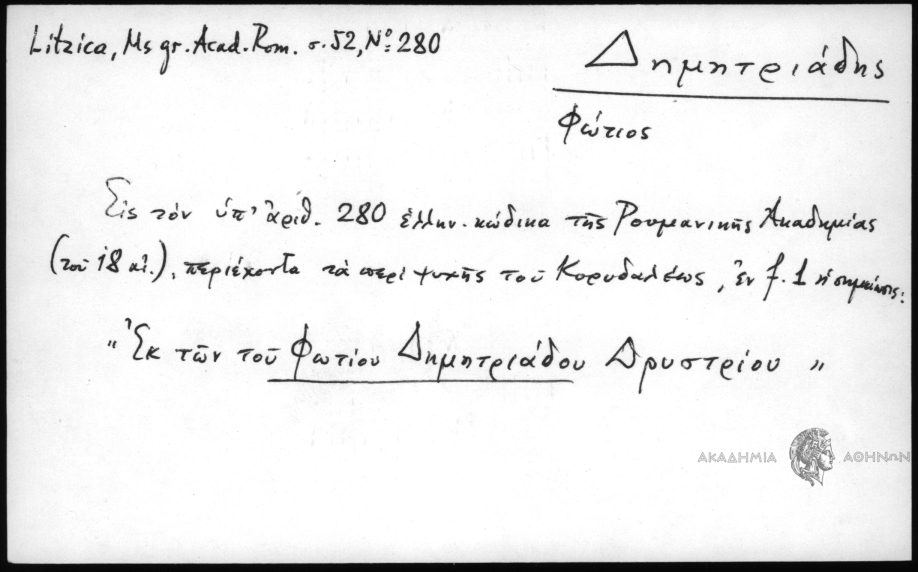 Litzica, Ms gr. Acad. Rom. σ. 52, Nº: 280
Δημητριάδης
Φώτιος
Εἰς τὸν ὑπ' ἀριθ. 280 ἑλλην. κώδικα τῆς Ρουμανικῆς Ἀκαδημίας
(τοῦ 18 αἰ.), περιέχοντα τὰ περὶ ψυχῆς τοῦ Κορυδαλέως, ἐν f. 1 ἡ σημείωσις:
"Ἐκ τῶν τοῦ Φωτίου Δημητριάδου Δρυστρίου"
ΑΚΑΔΗΜΙΑ ΑΘΗΝΩΝ